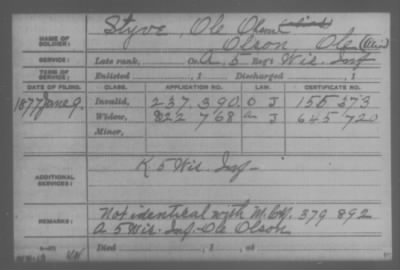 NAME OF SOLDIER: Styve, Ole Olson
Olson Ole (Alias)
SERVICE: Late rank, Co. A, 5 Reg't Wis. Inf
TERM OF SERVICE: Enlisted , 1 Discharged , 1
DATE OF FILING. CLASS. APPLICATION NO. LAW. CERTIFICATE NO.
1877 June 9. Invalid, 237,390 O J 155,373
Widow, 822 768 a J 645,720
Minor,
ADDITIONAL SERVICES: K 5 Wis. Inf
REMARKS: Not identical with M.C. 379 892
A 5 Wis. Inf - Ole Olson
Died , 1 , at